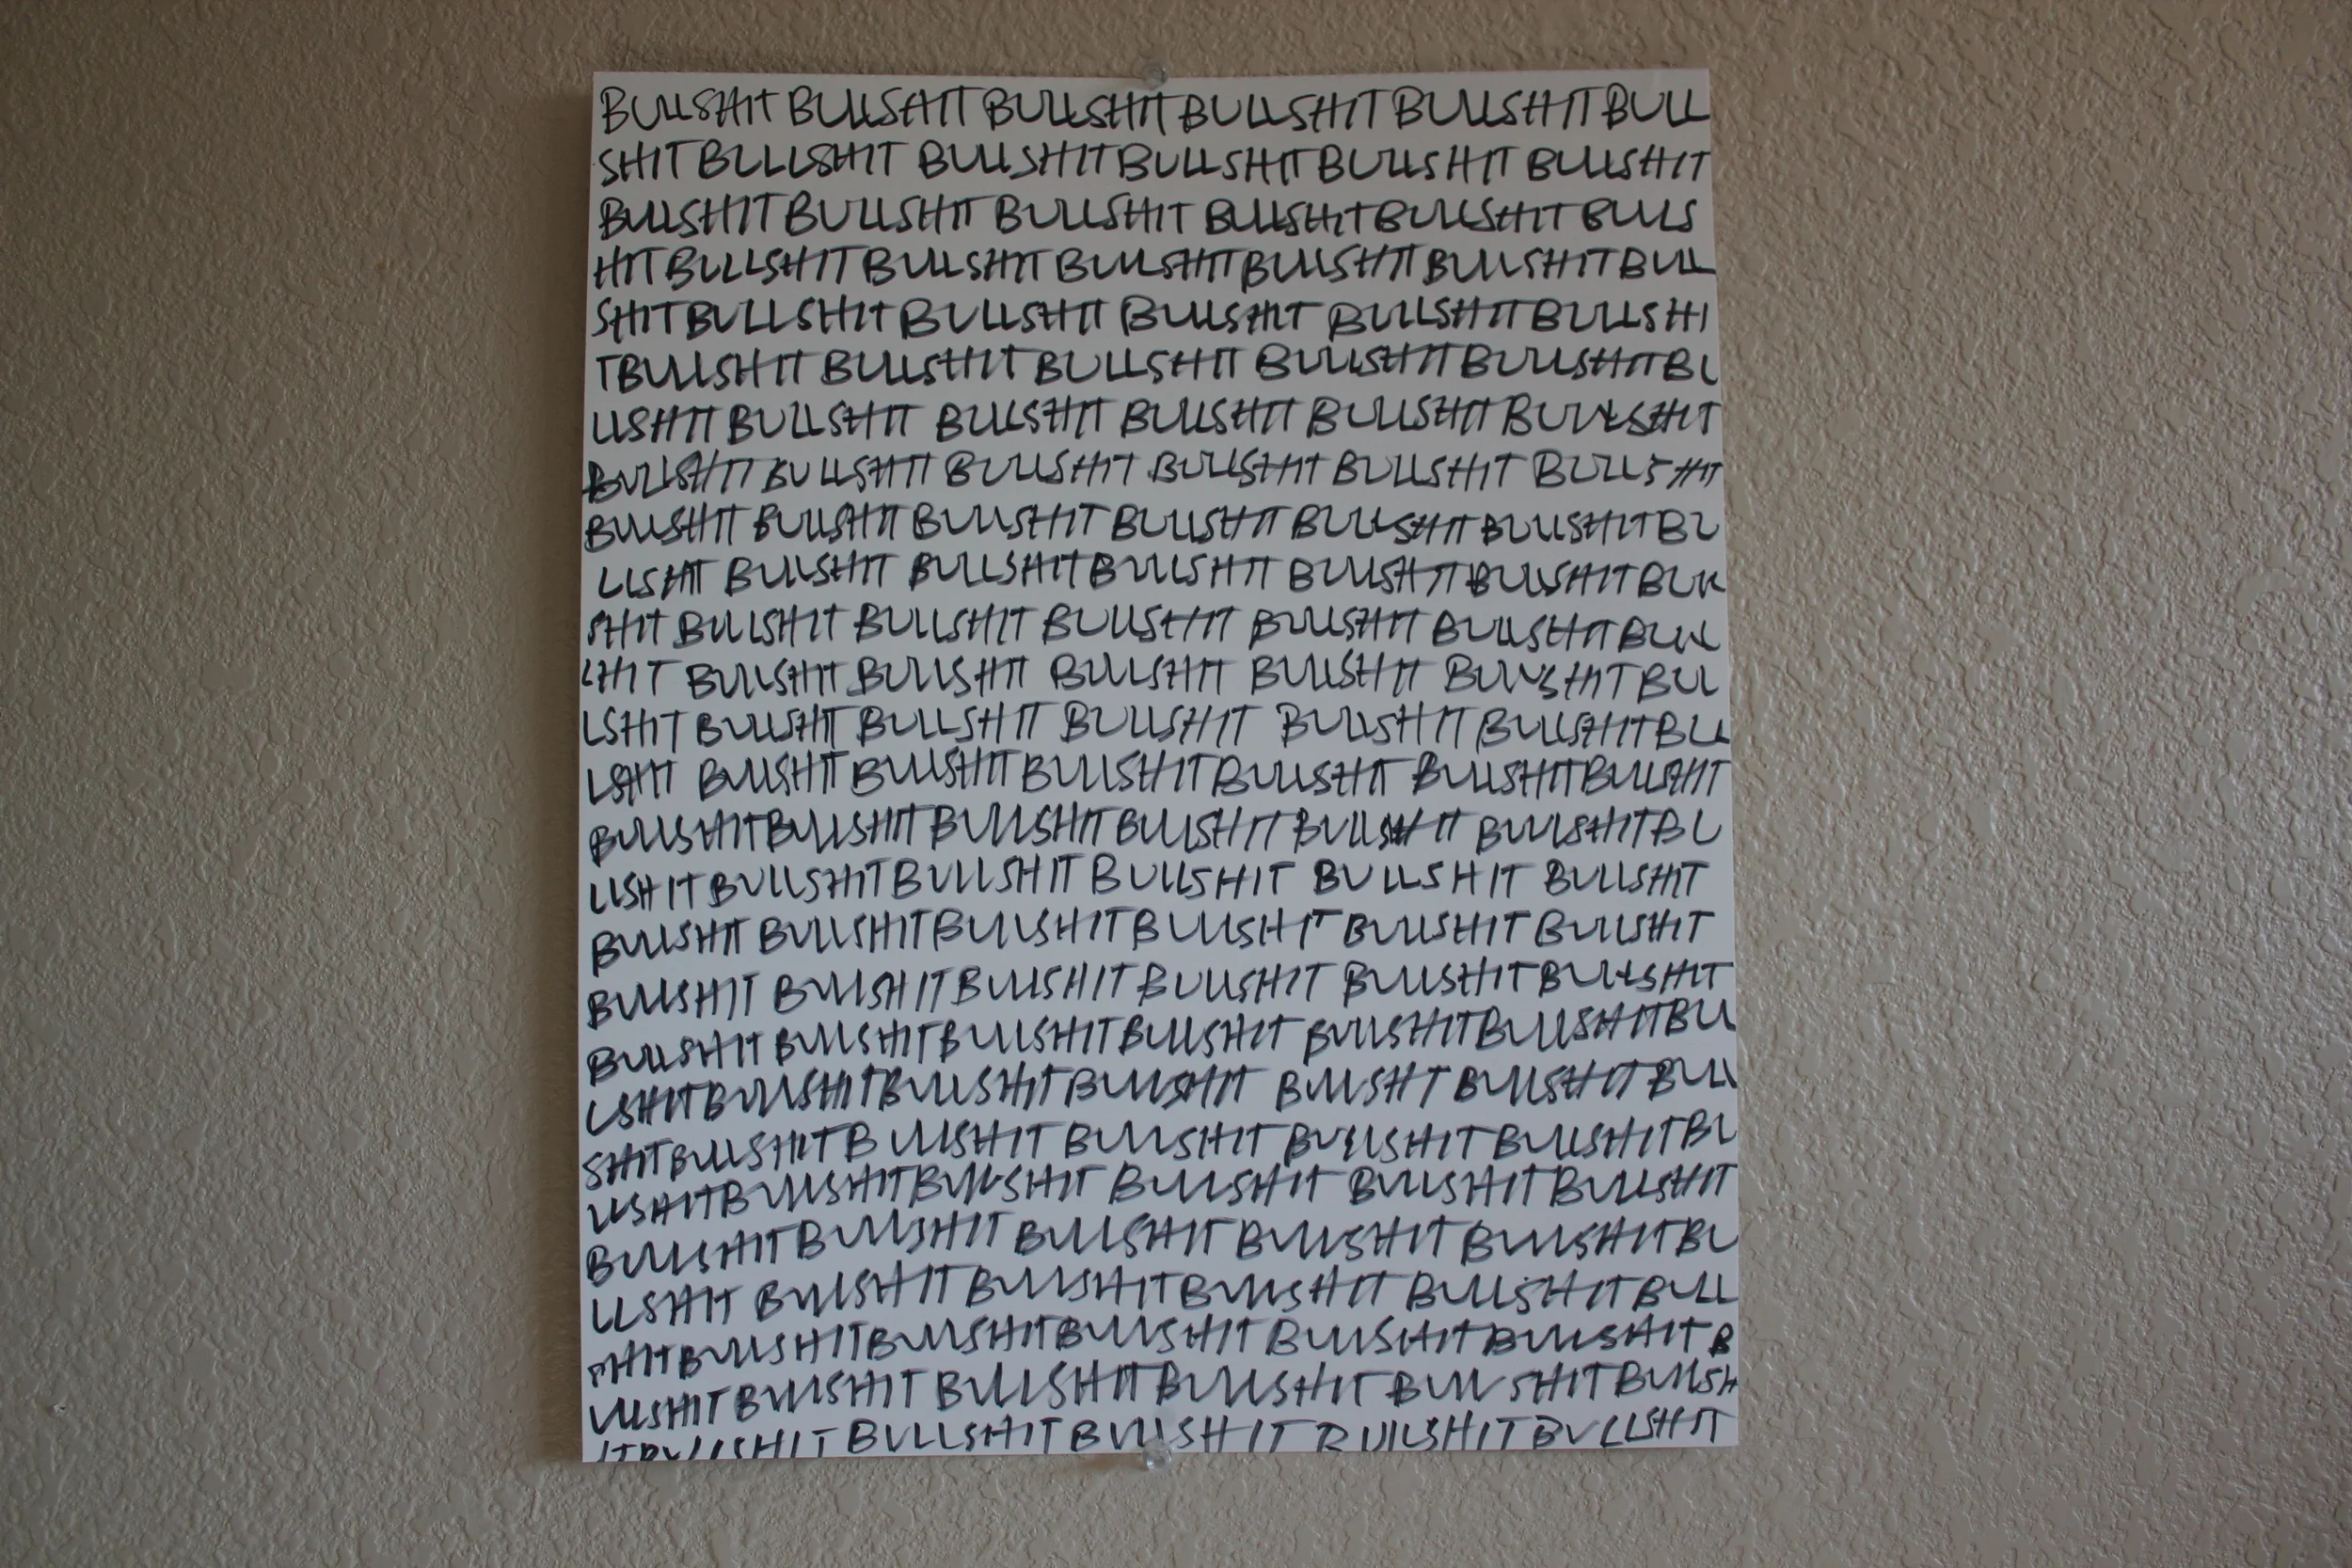 BULLSHIT BULLSHIT BULLSHIT BULLSHIT BULLSHIT BULL
SHIT BULLSHIT BULLSHIT BULLSHIT BULLSHIT BULLSHIT
BULLSHIT BULLSHIT BULLSHIT BULLSHIT BULLSHIT BULLS
HIT BULLSHIT BULLSHIT BULLSHIT BULLSHIT BULLSHIT BULL
SHIT BULLSHIT BULLSHIT BULLSHIT BULLSHIT BULLSHI
T BULLSHIT BULLSHIT BULLSHIT BULLSHIT BULLSHIT BU
LLSHIT BULLSHIT BULLSHIT BULLSHIT BULLSHIT BULLSHIT
BULLSHIT BULLSHIT BULLSHIT BULLSHIT BULLSHIT BULLSHIT
BULLSHIT BULLSHIT BULLSHIT BULLSHIT BULLSHIT BULLSHIT BU
LLSHIT BULLSHIT BULLSHIT BULLSHIT BULLSHIT BULLSHIT BULL
SHIT BULLSHIT BULLSHIT BULLSHIT BULLSHIT BULLSHIT BULL
SHIT BULLSHIT BULLSHIT BULLSHIT BULLSHIT BULLSHIT BUL
LSHIT BULLSHIT BULLSHIT BULLSHIT BULLSHIT BULLSHIT BUL
LSHIT BULLSHIT BULLSHIT BULLSHIT BULLSHIT BULLSHIT BULLSHIT
BULLSHIT BULLSHIT BULLSHIT BULLSHIT BULLSHIT BULLSHIT BU
LLSHIT BULLSHIT BULLSHIT BULLSHIT BULLSHIT BULLSHIT
BULLSHIT BULLSHIT BULLSHIT BULLSHIT BULLSHIT BULLSHIT
BULLSHIT BULLSHIT BULLSHIT BULLSHIT BULLSHIT BULLSHIT
BULLSHIT BULLSHIT BULLSHIT BULLSHIT BULLSHIT BULLSHIT BUL
LSHIT BULLSHIT BULLSHIT BULLSHIT BULLSHIT BULLSHIT BULL
SHIT BULLSHIT BULLSHIT BULLSHIT BULLSHIT BULLSHIT BU
LLSHIT BULLSHIT BULLSHIT BULLSHIT BULLSHIT BULLSHIT
BULLSHIT BULLSHIT BULLSHIT BULLSHIT BULLSHIT BU
LLSHIT BULLSHIT BULLSHIT BULLSHIT BULLSHIT BULL
SHIT BULLSHIT BULLSHIT BULLSHIT BULLSHIT BULLSHIT B
ULLSHIT BULLSHIT BULLSHIT BULLSHIT BULLSHIT BULLSH
IT BULLSHIT BULLSHIT BULLSHIT BULLSHIT BULLSHIT